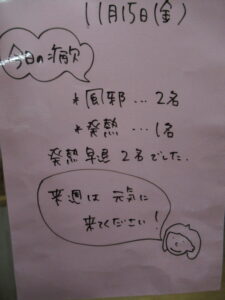 11月15日(金)
今日の病欠
*風邪…2名
*発熱…1名
発熱早退 2名でした.
来週は 元気に
来てください!